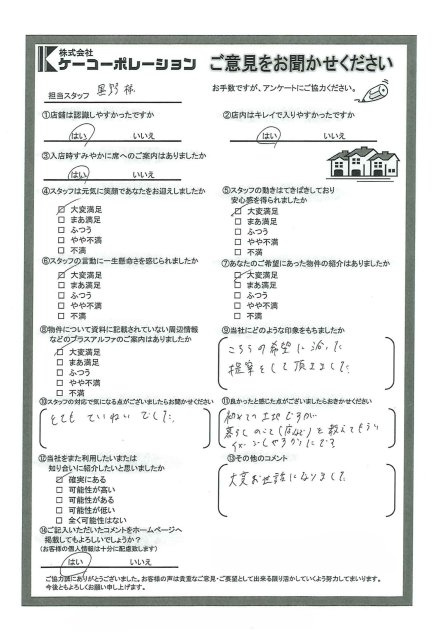 株式会社
ケーコーポレーション
ご意見をお聞かせください
担当スタッフ 星野 様
お手数ですが、アンケートにご協力ください。
①店舗は認識しやすかったですか
はい いいえ
②店内はキレイで入りやすかったですか
はい いいえ
③入店時すみやかに席へのご案内はありましたか
はい いいえ
④スタッフは元気に笑顔であなたをお迎えしましたか
□ 大変満足
□ まあ満足
□ ふつう
□ やや不満
□ 不満
⑤スタッフの動きはてきぱきしており
安心感を得られましたか
□ 大変満足
□ まあ満足
□ ふつう
□ やや不満
□ 不満
⑥スタッフの言動に一生懸命さを感じられましたか
□ 大変満足
□ まあ満足
□ ふつう
□ やや不満
□ 不満
⑦あなたのご希望にあった物件の紹介はありましたか
□ 大変満足
□ まあ満足
□ ふつう
□ やや不満
□ 不満
⑧物件について資料に記載されていない周辺情報
などのプラスアルファのご案内はありましたか
□ 大変満足
□ まあ満足
□ ふつう
□ やや不満
□ 不満
⑨当社にどのような印象をもちましたか
こちらの希望に添った
提案をして頂きました
⑩スタッフの対応で気になる点がございましたらお聞かせください
とても ていねい でした。
⑪良かったと感じた点がございましたらお聞かせください
初めての土地ですが
暮らしのこと(店など)を教えてもらい
⑫当社をまた利用したいまたは
知り合いに紹介したいと思いましたか
□ 確実にある
□ 可能性が高い
□ 可能性がある
□ 可能性が低い
□ 全く可能性はない
⑬その他のコメント
大変お世話になりました
⑭ご記入いただいたコメントをホームページへ
掲載してもよろしいでしょうか?
(お客様の個人情報は十分に配慮致します)
はい いいえ
ご協力誠にありがとうございました。お客様の声は貴重なご意見・ご要望として出来る限り活かしていくよう努力してまいります。
今後ともよろしくお願い申し上げます。